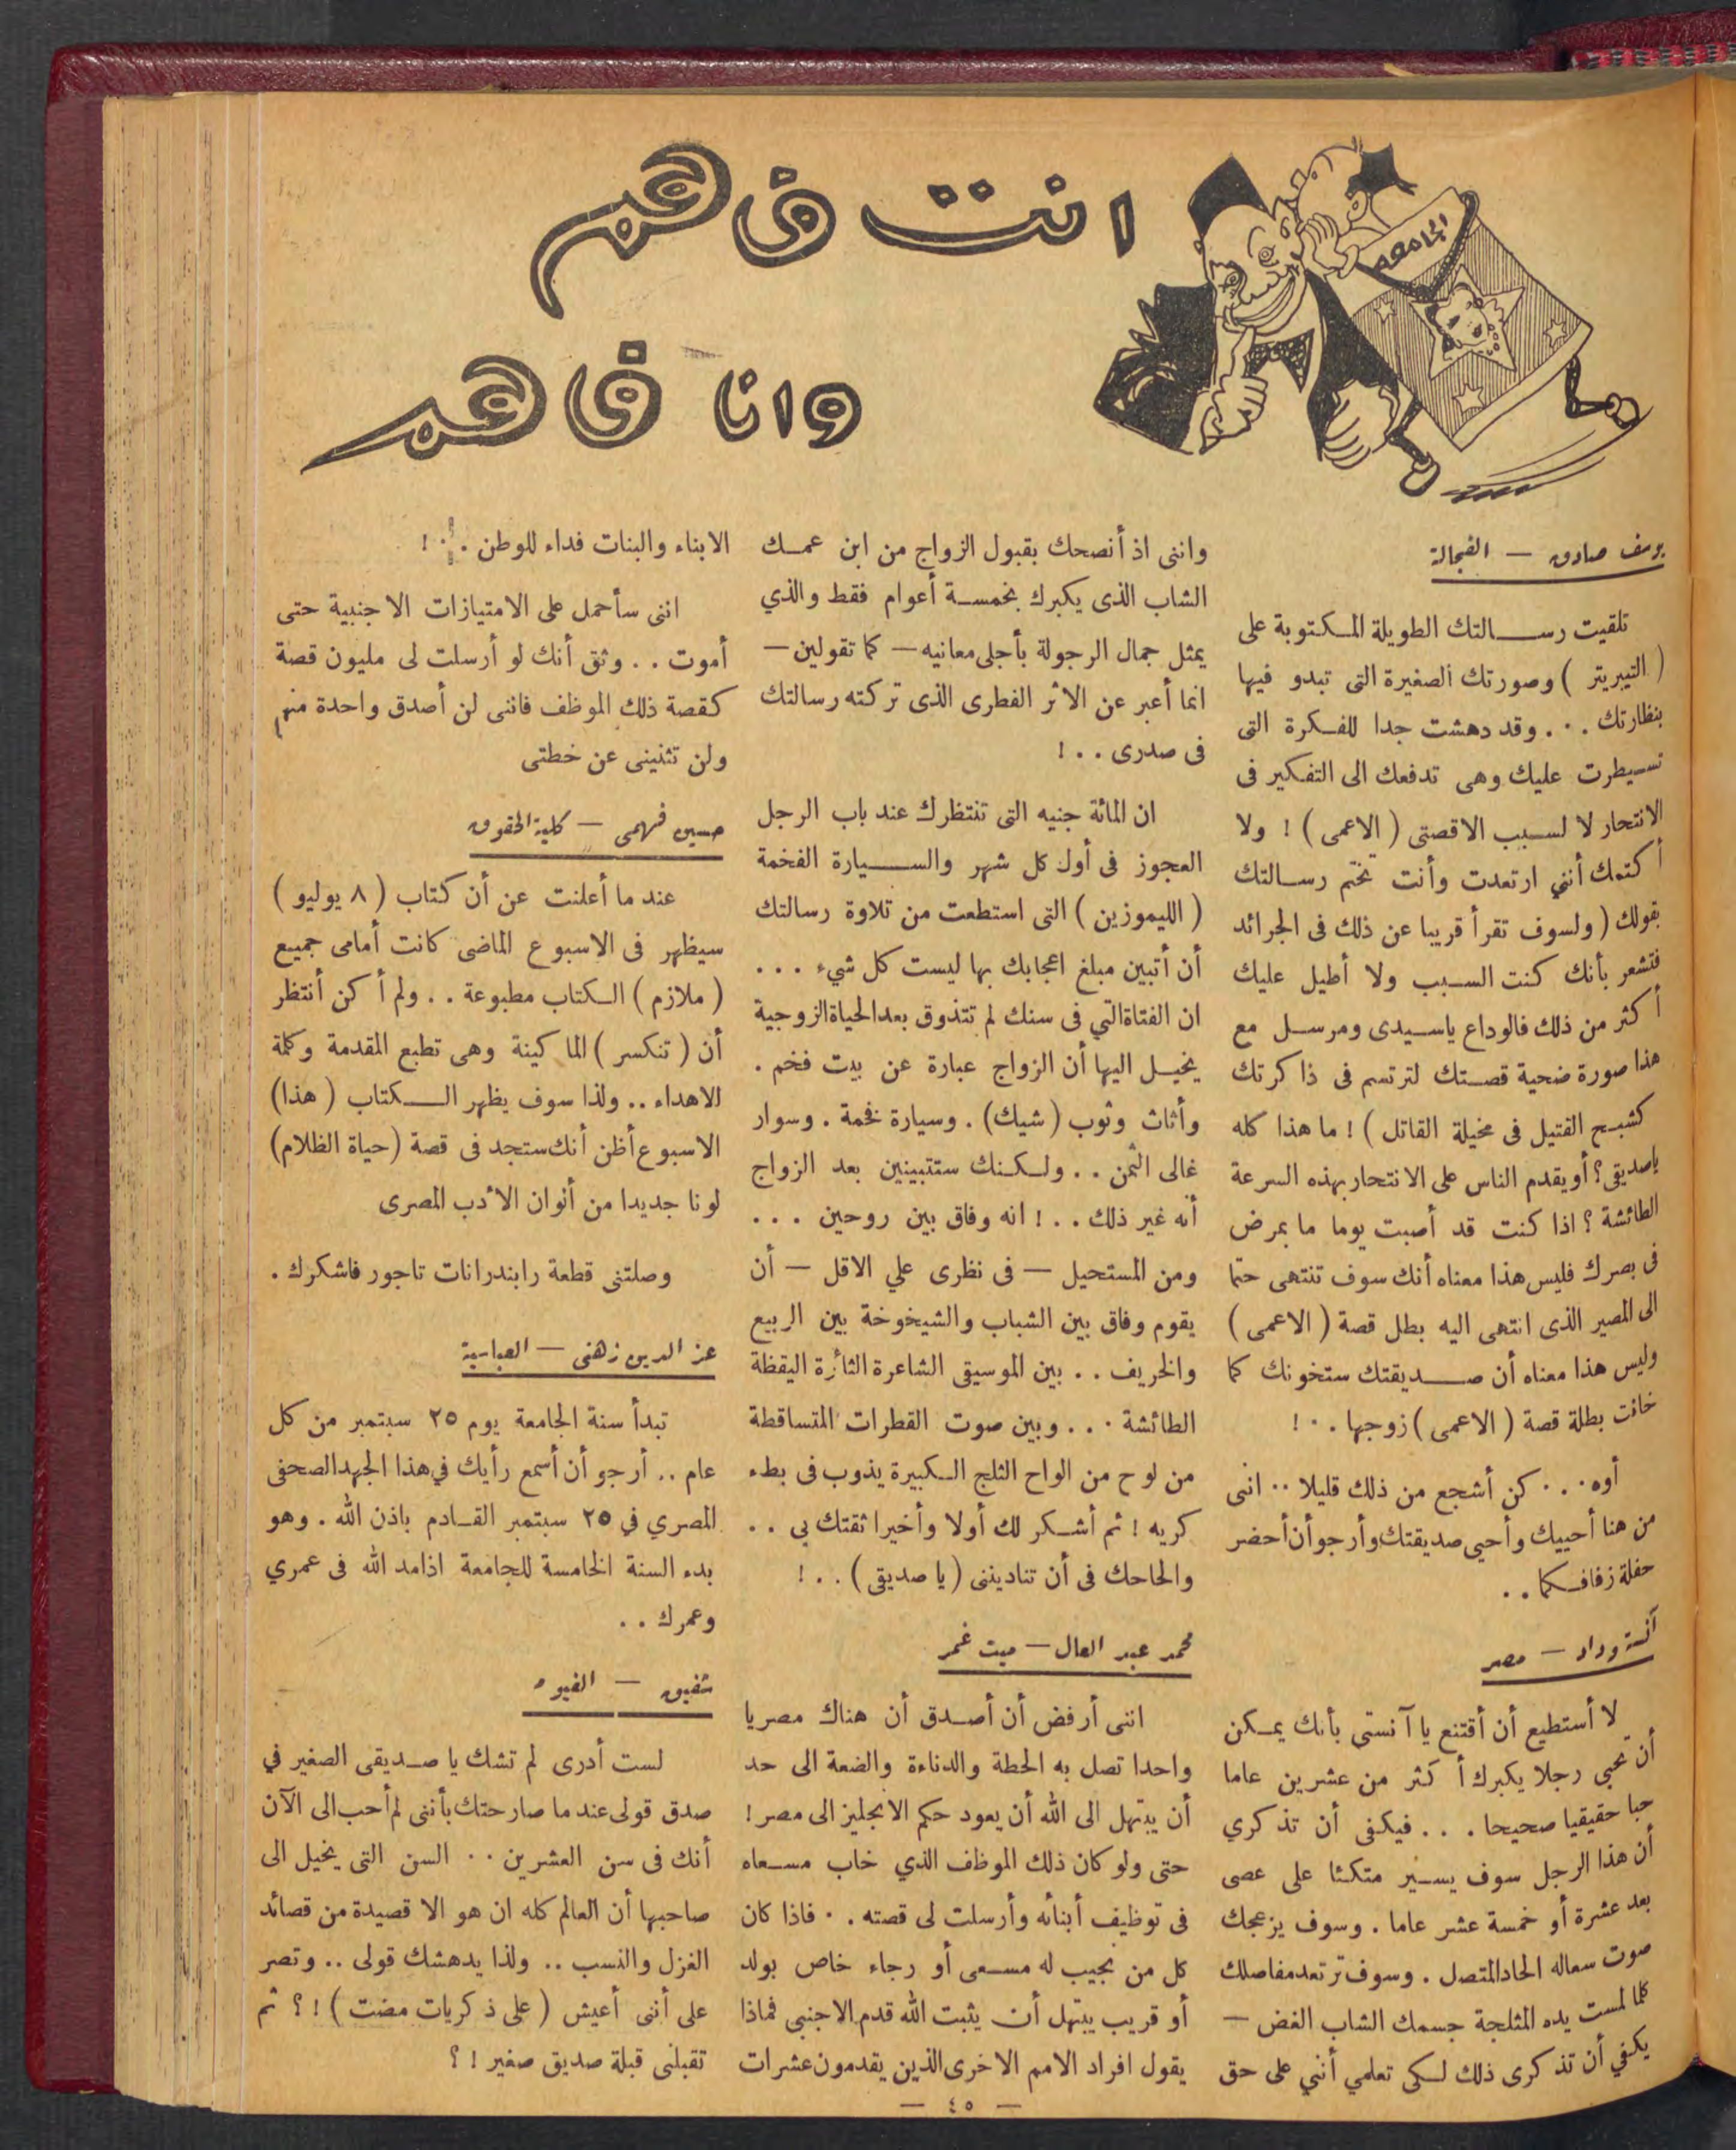 انت فاهم
وانا فاهم
الجامعة
يوسف صادق — الفجالة
تلقيت رسالتك الطويلة المكتوبة على
( التيبريتر ) وصورتك الصغيرة التى تبدو فيها
بنظارتك . . . وقد دهشت جدا للفكرة التى
تسيطرت عليك وهى تدفعك الى التفكير فى
الانتحار لا لسبب الاقصتى ( الاعمى ) ! ولا
أكتمك أنني ارتعدت وأنت تختم رسالتك
بقولك ( ولسوف تقرأ قريبا عن ذلك فى الجرائد
فتشعر بأنك كنت السبب ولا أطيل عليك
أكثر من ذلك فالوداع ياسيدى ومرسل مع
هذا صورة ضحية قصتك لترتسم فى ذاكرتك
كشبح القتيل فى مخيلة القاتل ) ! ما هذا كله
ياصديقى ؟ أو يقدم الناس على الانتحار بهذه السرعة
الطائشة ؟ اذا كنت قد أصبت يوما ما بمرض
فى بصرك فليس هذا معناه أنك سوف تنتهى حتما
الى المصير الذى انتهى اليه بطل قصة ( الاعمى )
وليس هذا معناه أن صديقتك ستخونك كما
خانت بطلة قصة ( الاعمى ) زوجها . . !
أوه . . . كن أشجع من ذلك قليلا . . انى
من هنا أحييك وأحيى صديقتك وأرجو أن أحضر
حفلة زفافكما . .
آنسة وداد — مصر
لا أستطيع أن أقتنع يا آنستى بأنك يمكن
أن تحبى رجلا يكبرك أكثر من عشرين عاما
حبا حقيقيا صحيحا . . . فيكفى أن تذكري
أن هذا الرجل سوف يسير متكئا على عصى
بعد عشرة أو خمسة عشر عاما . وسوف يزعجك
صوت سعاله الحاد المتصل . وسوف ترتعد مفاصلك
كلما لمست يده المثلجة جسمك الشاب الغض —
يكفي أن تذكرى ذلك لكى تعلمي أنني على حق
وانى اذ أنصحك بقبول الزواج من ابن عمك
الشاب الذى يكبرك بخمسة أعوام فقط والذي
يمثل جمال الرجولة بأجلى معانيه — كما تقولين —
انما أعبر عن الاثر الفطرى الذى تركته رسالتك
فى صدرى . . !
ان المائة جنيه التى تنتظرك عند باب الرجل
العجوز فى أول كل شهر والسيارة الفخمة
( الليموزين ) التى استطعت من تلاوة رسالتك
أن أتبين مبلغ اعجابك بها ليست كل شيء . . .
ان الفتاة التي فى سنك لم تتذوق بعد الحياة الزوجية
يخيل اليها أن الزواج عبارة عن بيت فخم .
وأثاث وثوب ( شيك ) . وسيارة فخمة . وسوار
غالى الثمن . . ولكنك ستتبينين بعد الزواج
أنه غير ذلك . . ! انه وفاق بين روحين . . .
ومن المستحيل — فى نظرى علي الاقل — أن
يقوم وفاق بين الشباب والشيخوخة بين الربيع
والخريف . . بين الموسيقى الشاعرة الثائرة اليقظة
الطائشة . . . وبين صوت القطرات المتساقطة
من لوح من الواح الثلج الكبيرة يذوب فى بطء
كريه ! ثم أشكر لك أولا وأخيرا ثقتك بي . .
والحاحك فى أن تناديننى ( يا صديقى ) . . !
محمد عبد العال — ميت غمر
اننى أرفض أن أصدق أن هناك مصريا
واحدا تصل به الحطة والدناءة والضعة الى حد
أن يبتهل الى الله أن يعود حكم الانجليز الى مصر !
حتى ولو كان ذلك الموظف الذي خاب مسعاه
فى توظيف أبنائه وأرسلت لى قصته . . فاذا كان
كل من نجيب له مسعى أو رجاء خاص بولد
أو قريب يبتهل أن يثبت الله قدم الاجنبى فماذا
يقول افراد الامم الاخرى الذين يقدمون عشرات
الابناء والبنات فداء للوطن . . !
اننى سأحمل على الامتيازات الاجنبية حتى
أموت . . وثق أنك لو أرسلت لى مليون قصة
كقصة ذلك الموظف فاننى لن أصدق واحدة منهم
ولن تثنينى عن خطتى
حسين فهمى — كلية الحقوق
عند ما أعلنت عن أن كتاب ( ٨ يوليو )
سيظهر فى الاسبوع الماضى كانت أمامى جميع
( ملازم ) الكتاب مطبوعة . . ولم أكن أنتظر
أن ( تنكسر ) الماكينة وهى تطبع المقدمة وكلمة
الاهداء . . ولذا سوف يظهر الكتاب ( هذا )
الاسبوع أظن أنك ستجد فى قصة ( حياة الظلام )
لونا جديدا من أنوان الأدب المصرى
وصلتنى قطعة رابندرانات تاجور فاشكرك .
عز الدين زهنى — العباسية
تبدأ سنة الجامعة يوم ٢٥ سبتمبر من كل
عام . . أرجو أن أسمع رأيك في هذا الجهد الصحفى
المصري في ٢٥ سبتمبر القادم باذن الله . وهو
بدء السنة الخامسة للجامعة اذا مد الله فى عمري
وعمرك . .
شفيق — الفيوم
لست أدرى لم تشك يا صديقى الصغير في
صدق قولى عند ما صارحتك بأننى لم أحب الى الآن
أنك فى سن العشرين . . السن التى يخيل الى
صاحبها أن العالم كله ان هو الا قصيدة من قصائد
الغزل والنسب . . ولذا يدهشك قولى . . وتصر
على أننى أعيش ( على ذكريات مضت ) ! ؟ ثم
تقبلنى قبلة صديق صغير ! ؟
— ٤٥ —